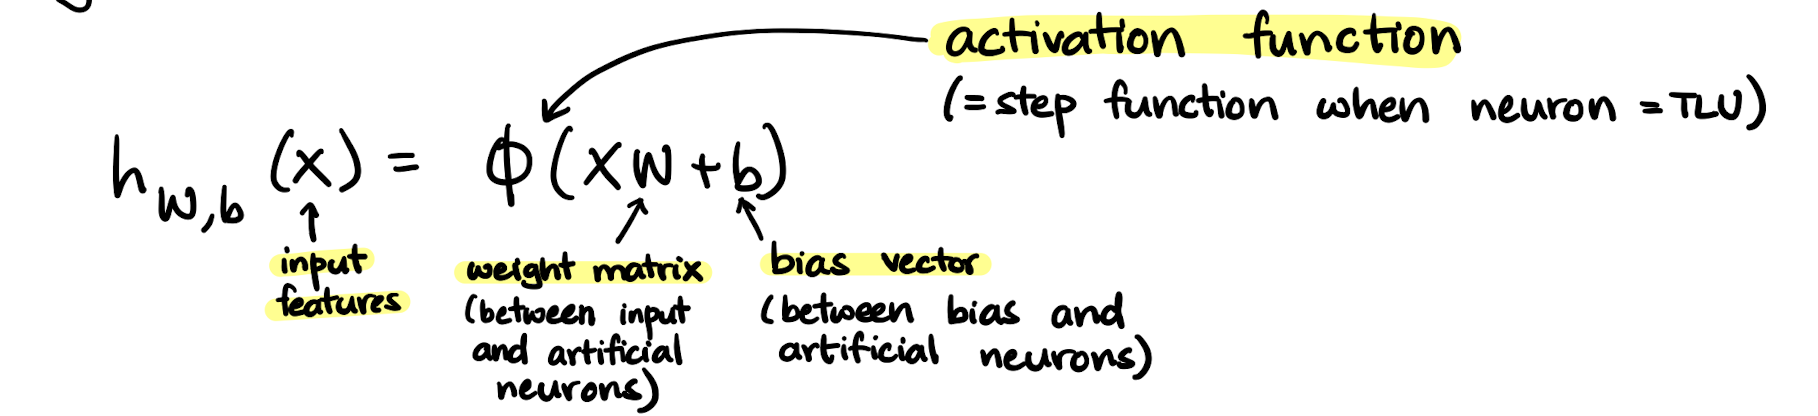 activation function
(= step function when neuron = TLU)
h_{W,b} (X) = ϕ(XW + b)
input
features
weight matrix
(between input
and artificial
neurons)
bias vector
(between bias and
artificial neurons)